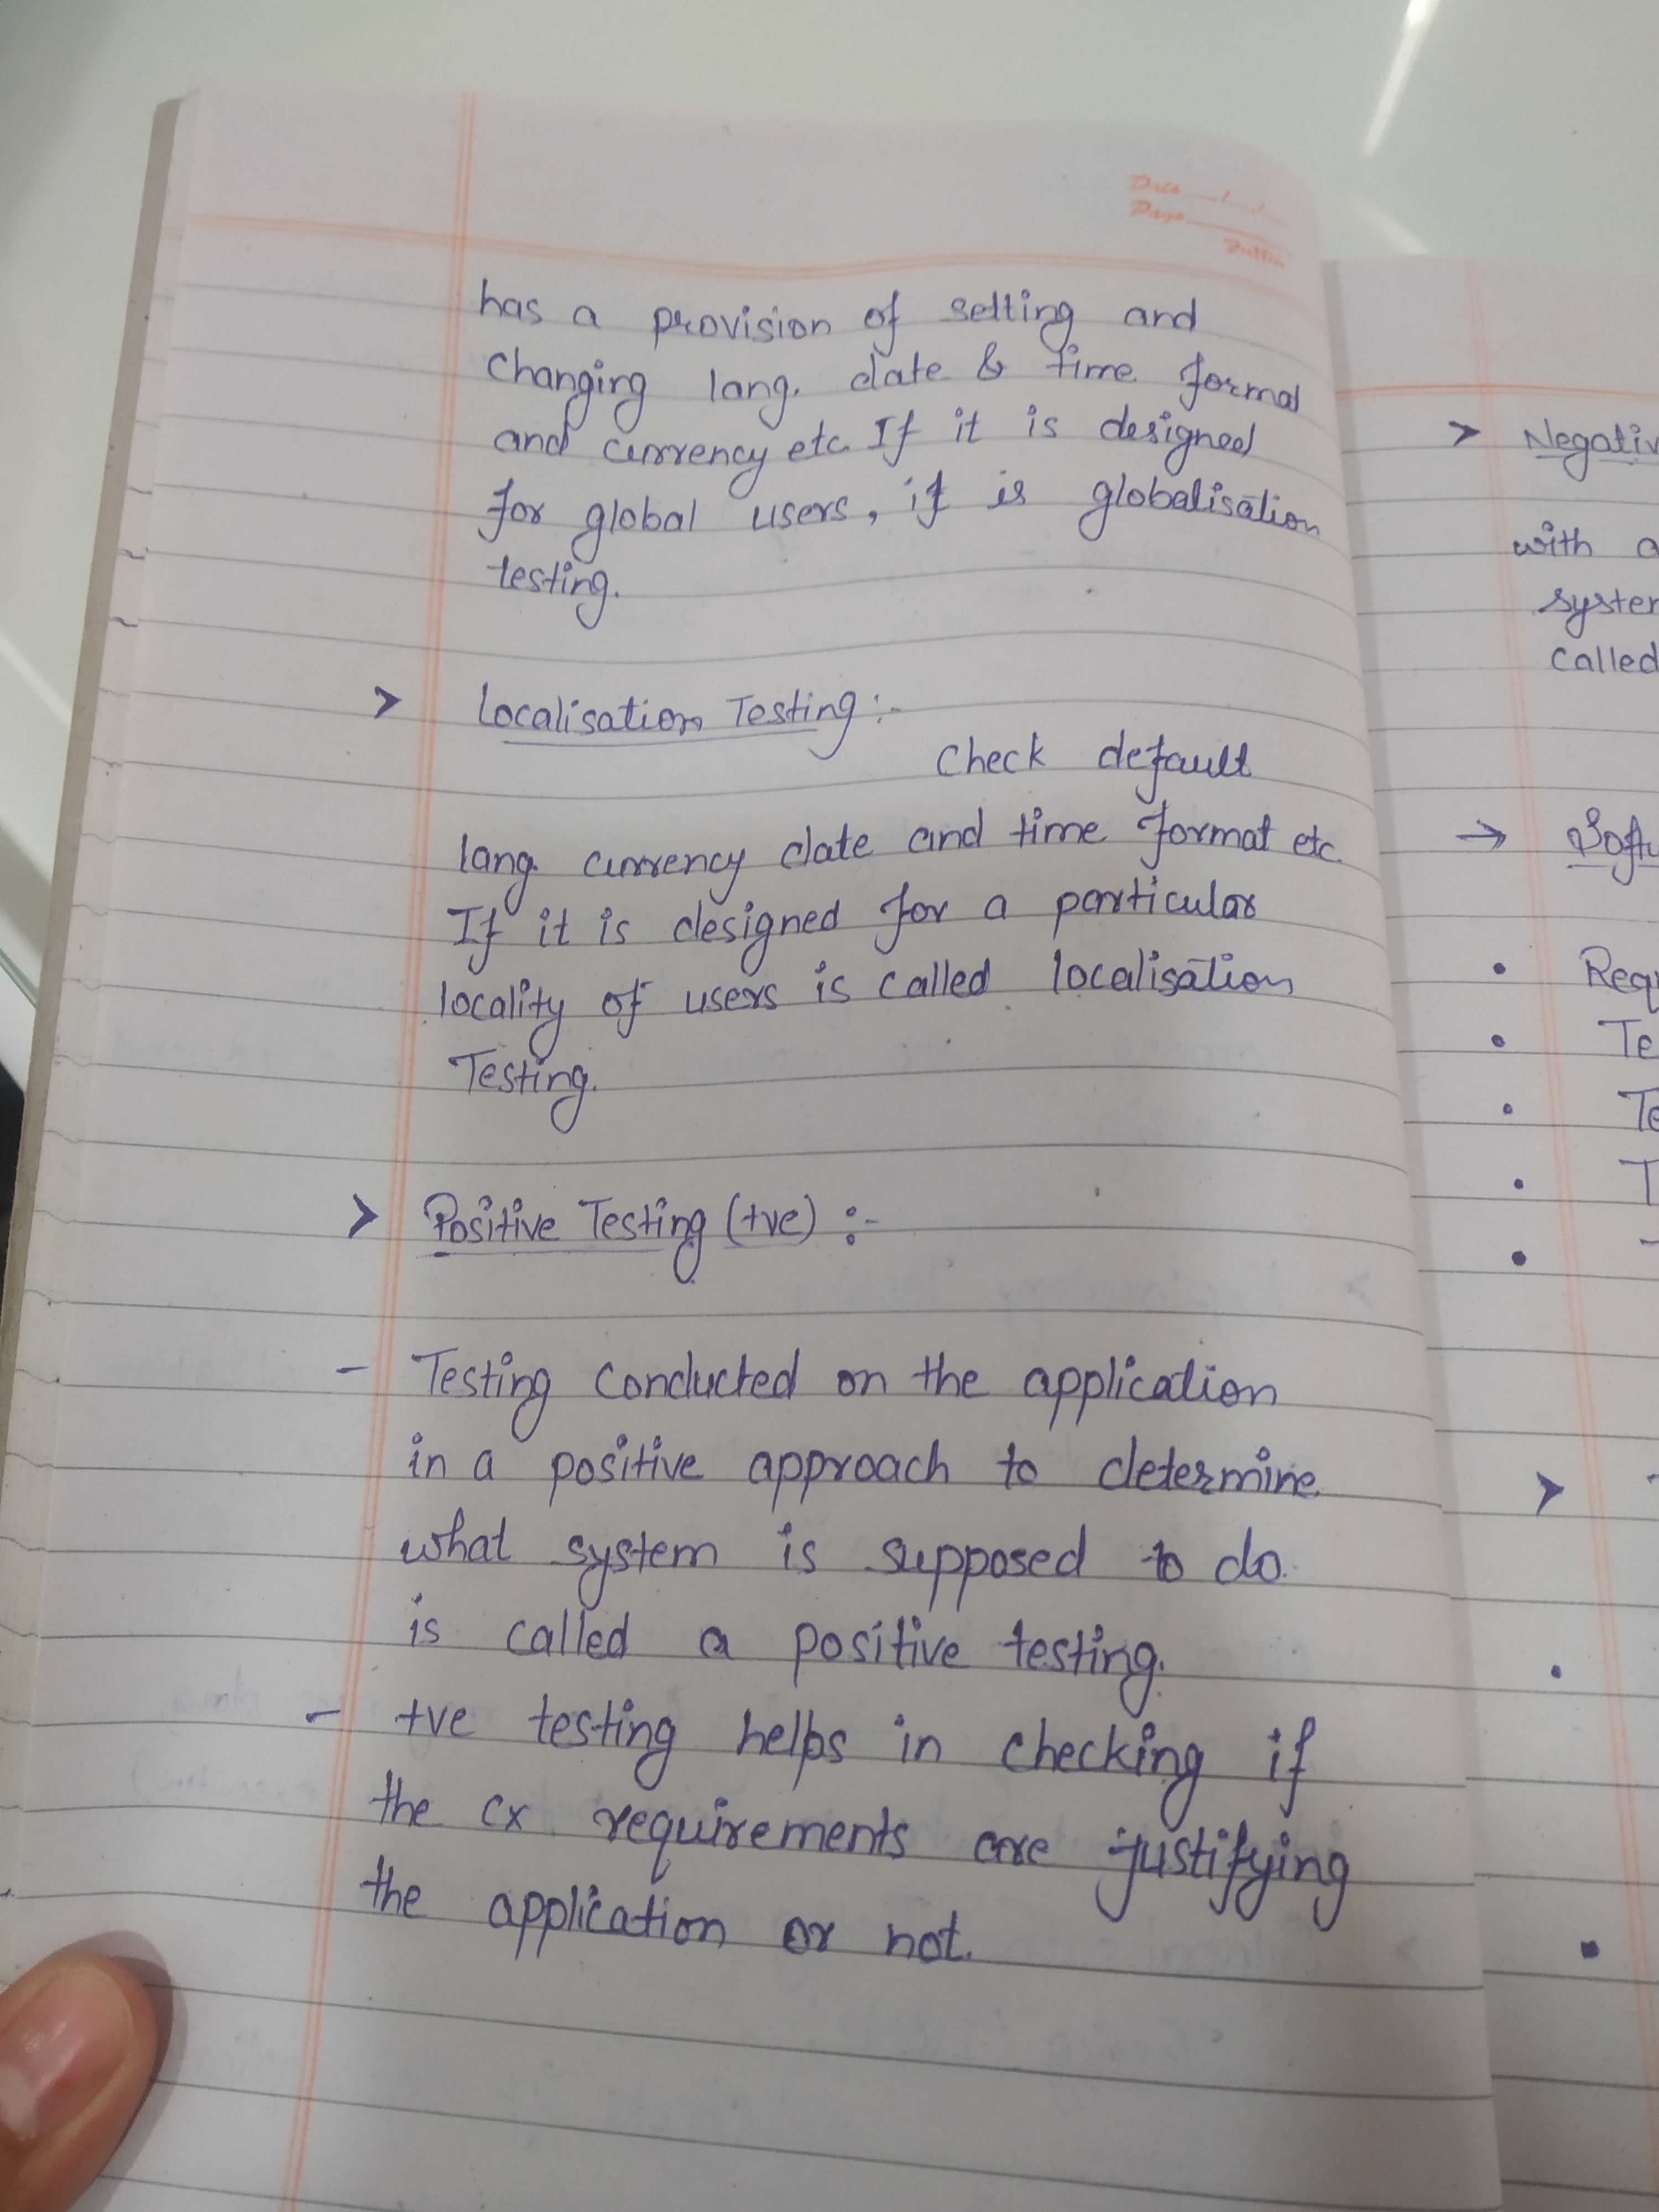 Date / /
Page
has a provision of setting and
changing lang. date & time format
and currency etc. If it is designed
for global users, it is globalisation
testing.
> Localisation Testing :-
Check default
lang. currency date and time format etc.
If it is designed for a particular
locality of users is called localisation
Testing.
> Positive Testing (+ve) :-
- Testing conducted on the application
in a positive approach to determine
what system is supposed to do.
is called a positive testing.
- +ve testing helps in checking if
the cx requirements are justifying
the application or not.
> Negativ
with a
system
called
→ Softw
• Requ
• Te
• Te
• T
•
>